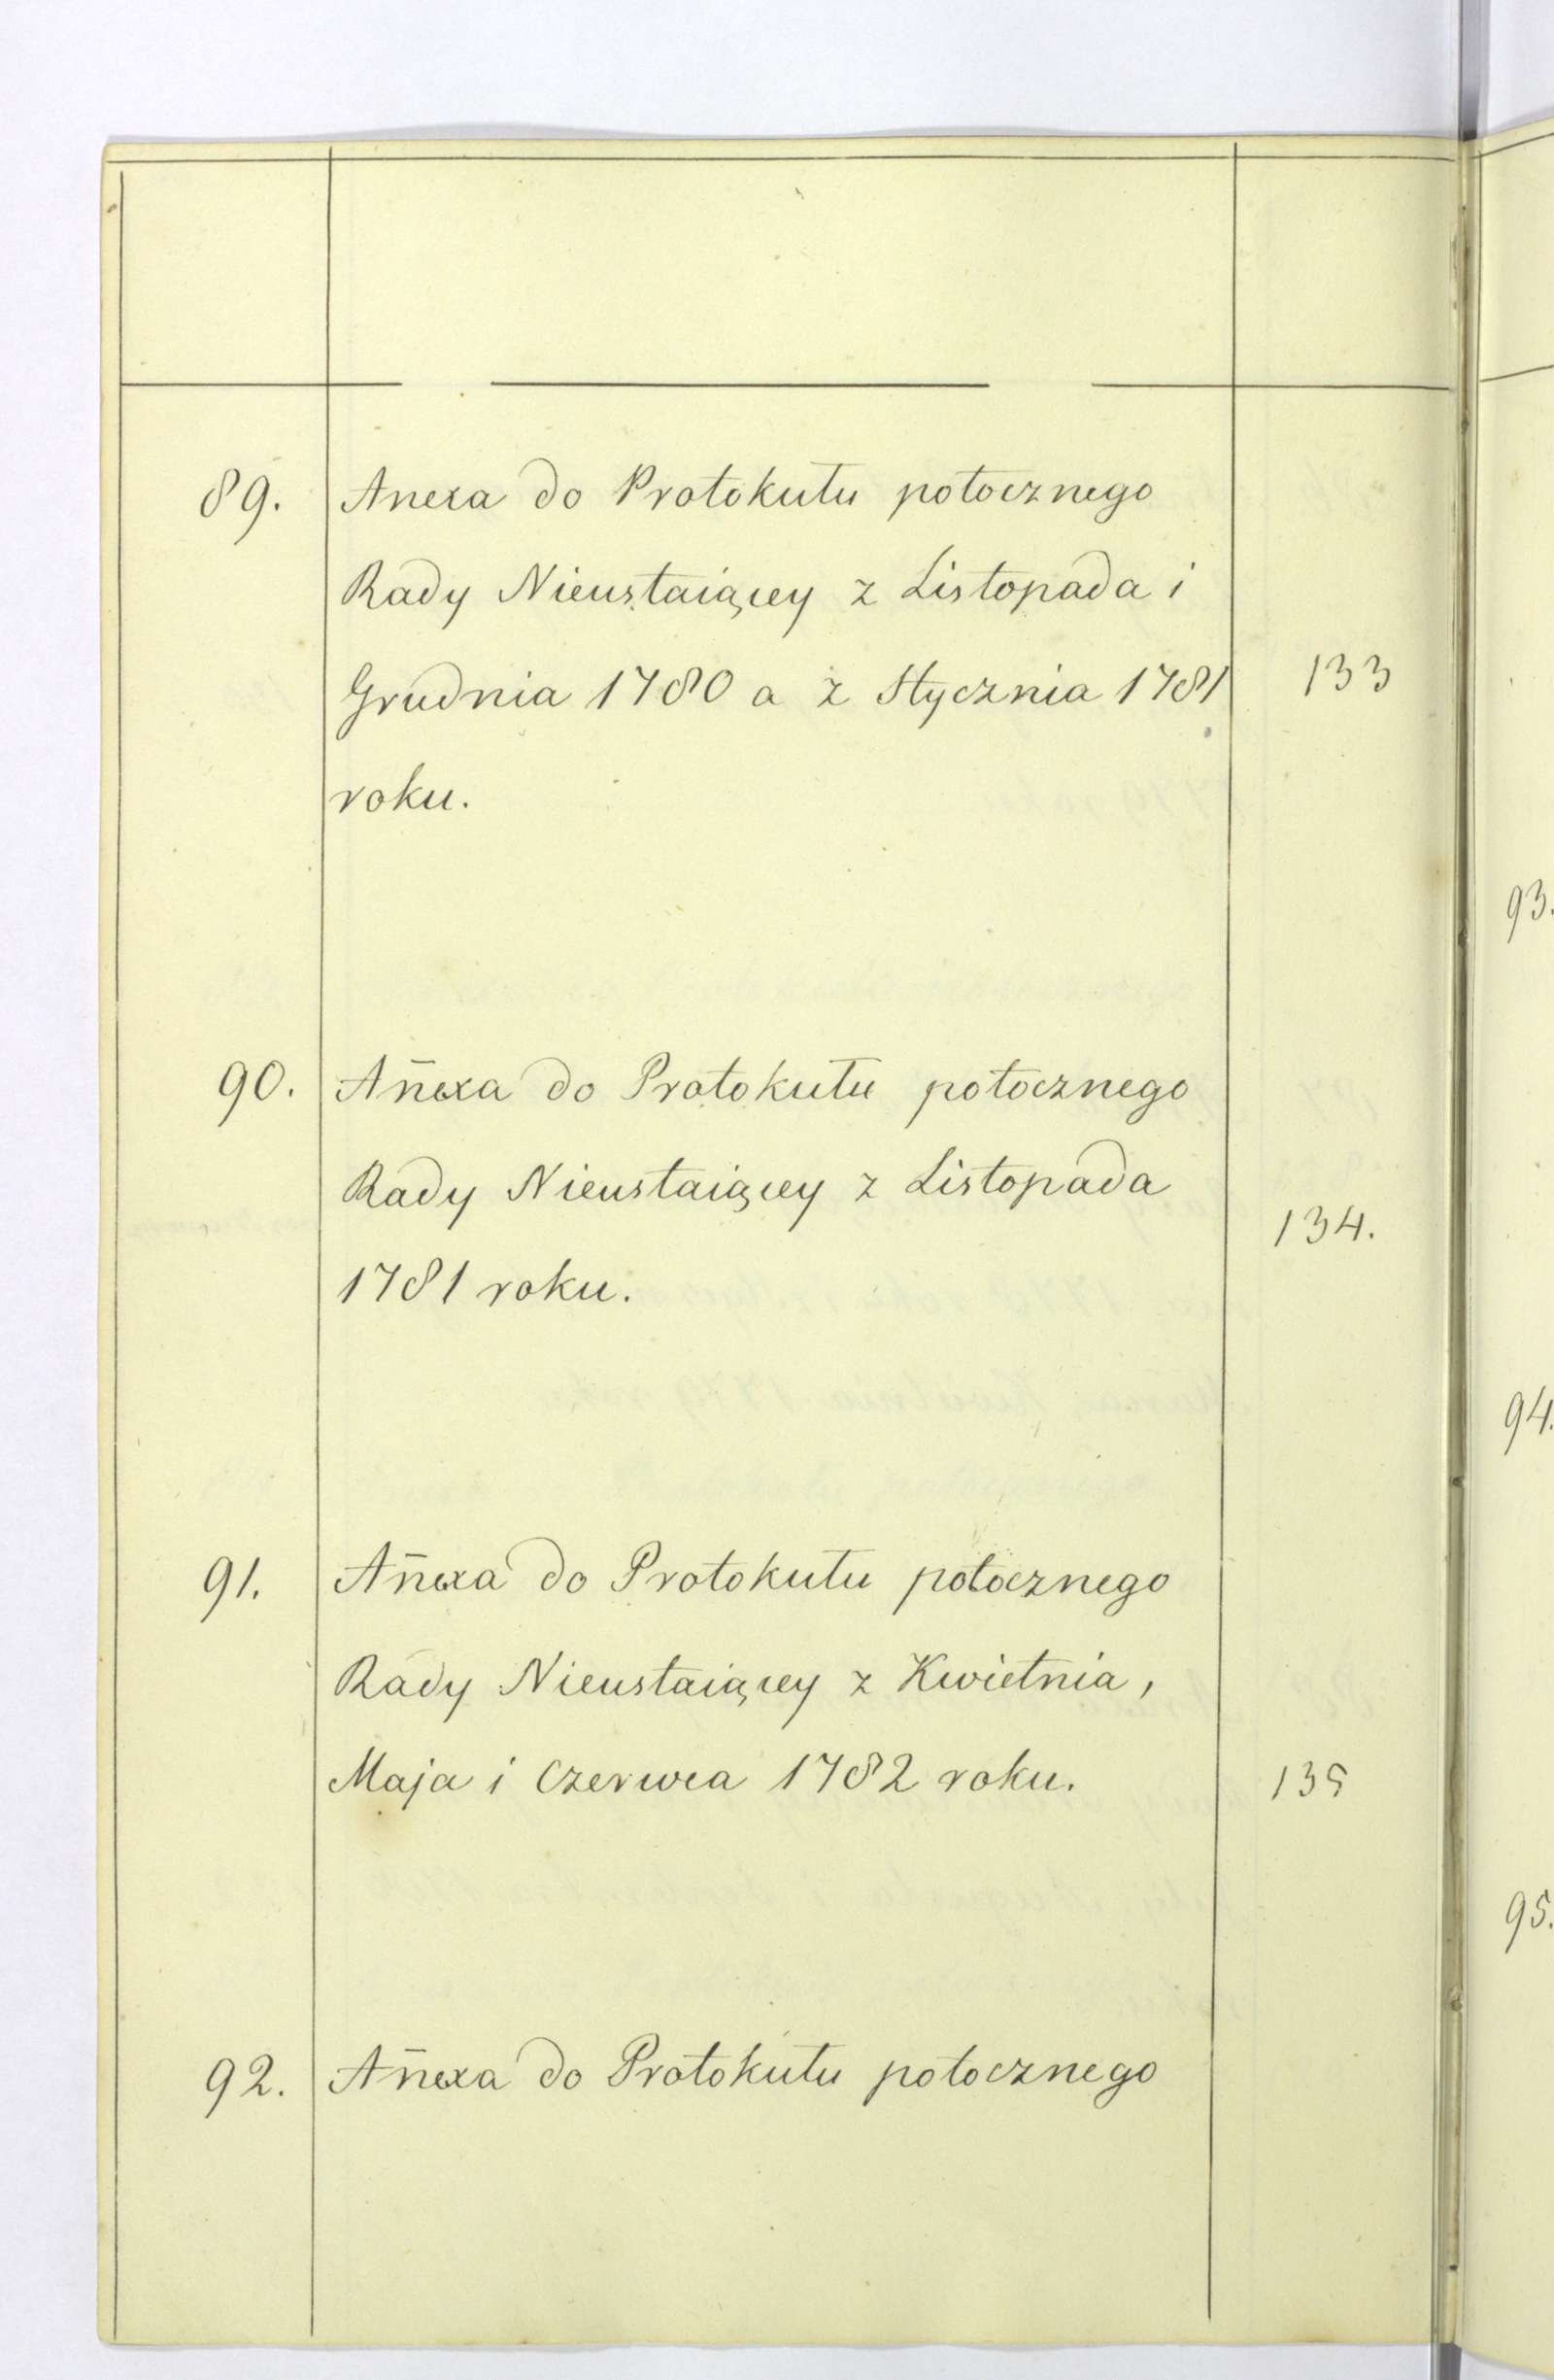 89. Anexa do Protokułu potocznego
Rady Nieustaiącey z Listopada i
Grudnia 1780 a z Stycznia 1781 133
roku.
90. Añexa do Protokułu potocznego
Rady Nieustaiącey z Listopada
134.
1781 roku.
91. Añexa do Protokułu potocznego
Rady Nieustaiącey z Kwietnia,
Maja i Czerwca 1782 roku. 135
92. Añexa do Protokułu potocznego
93.
94.
95.